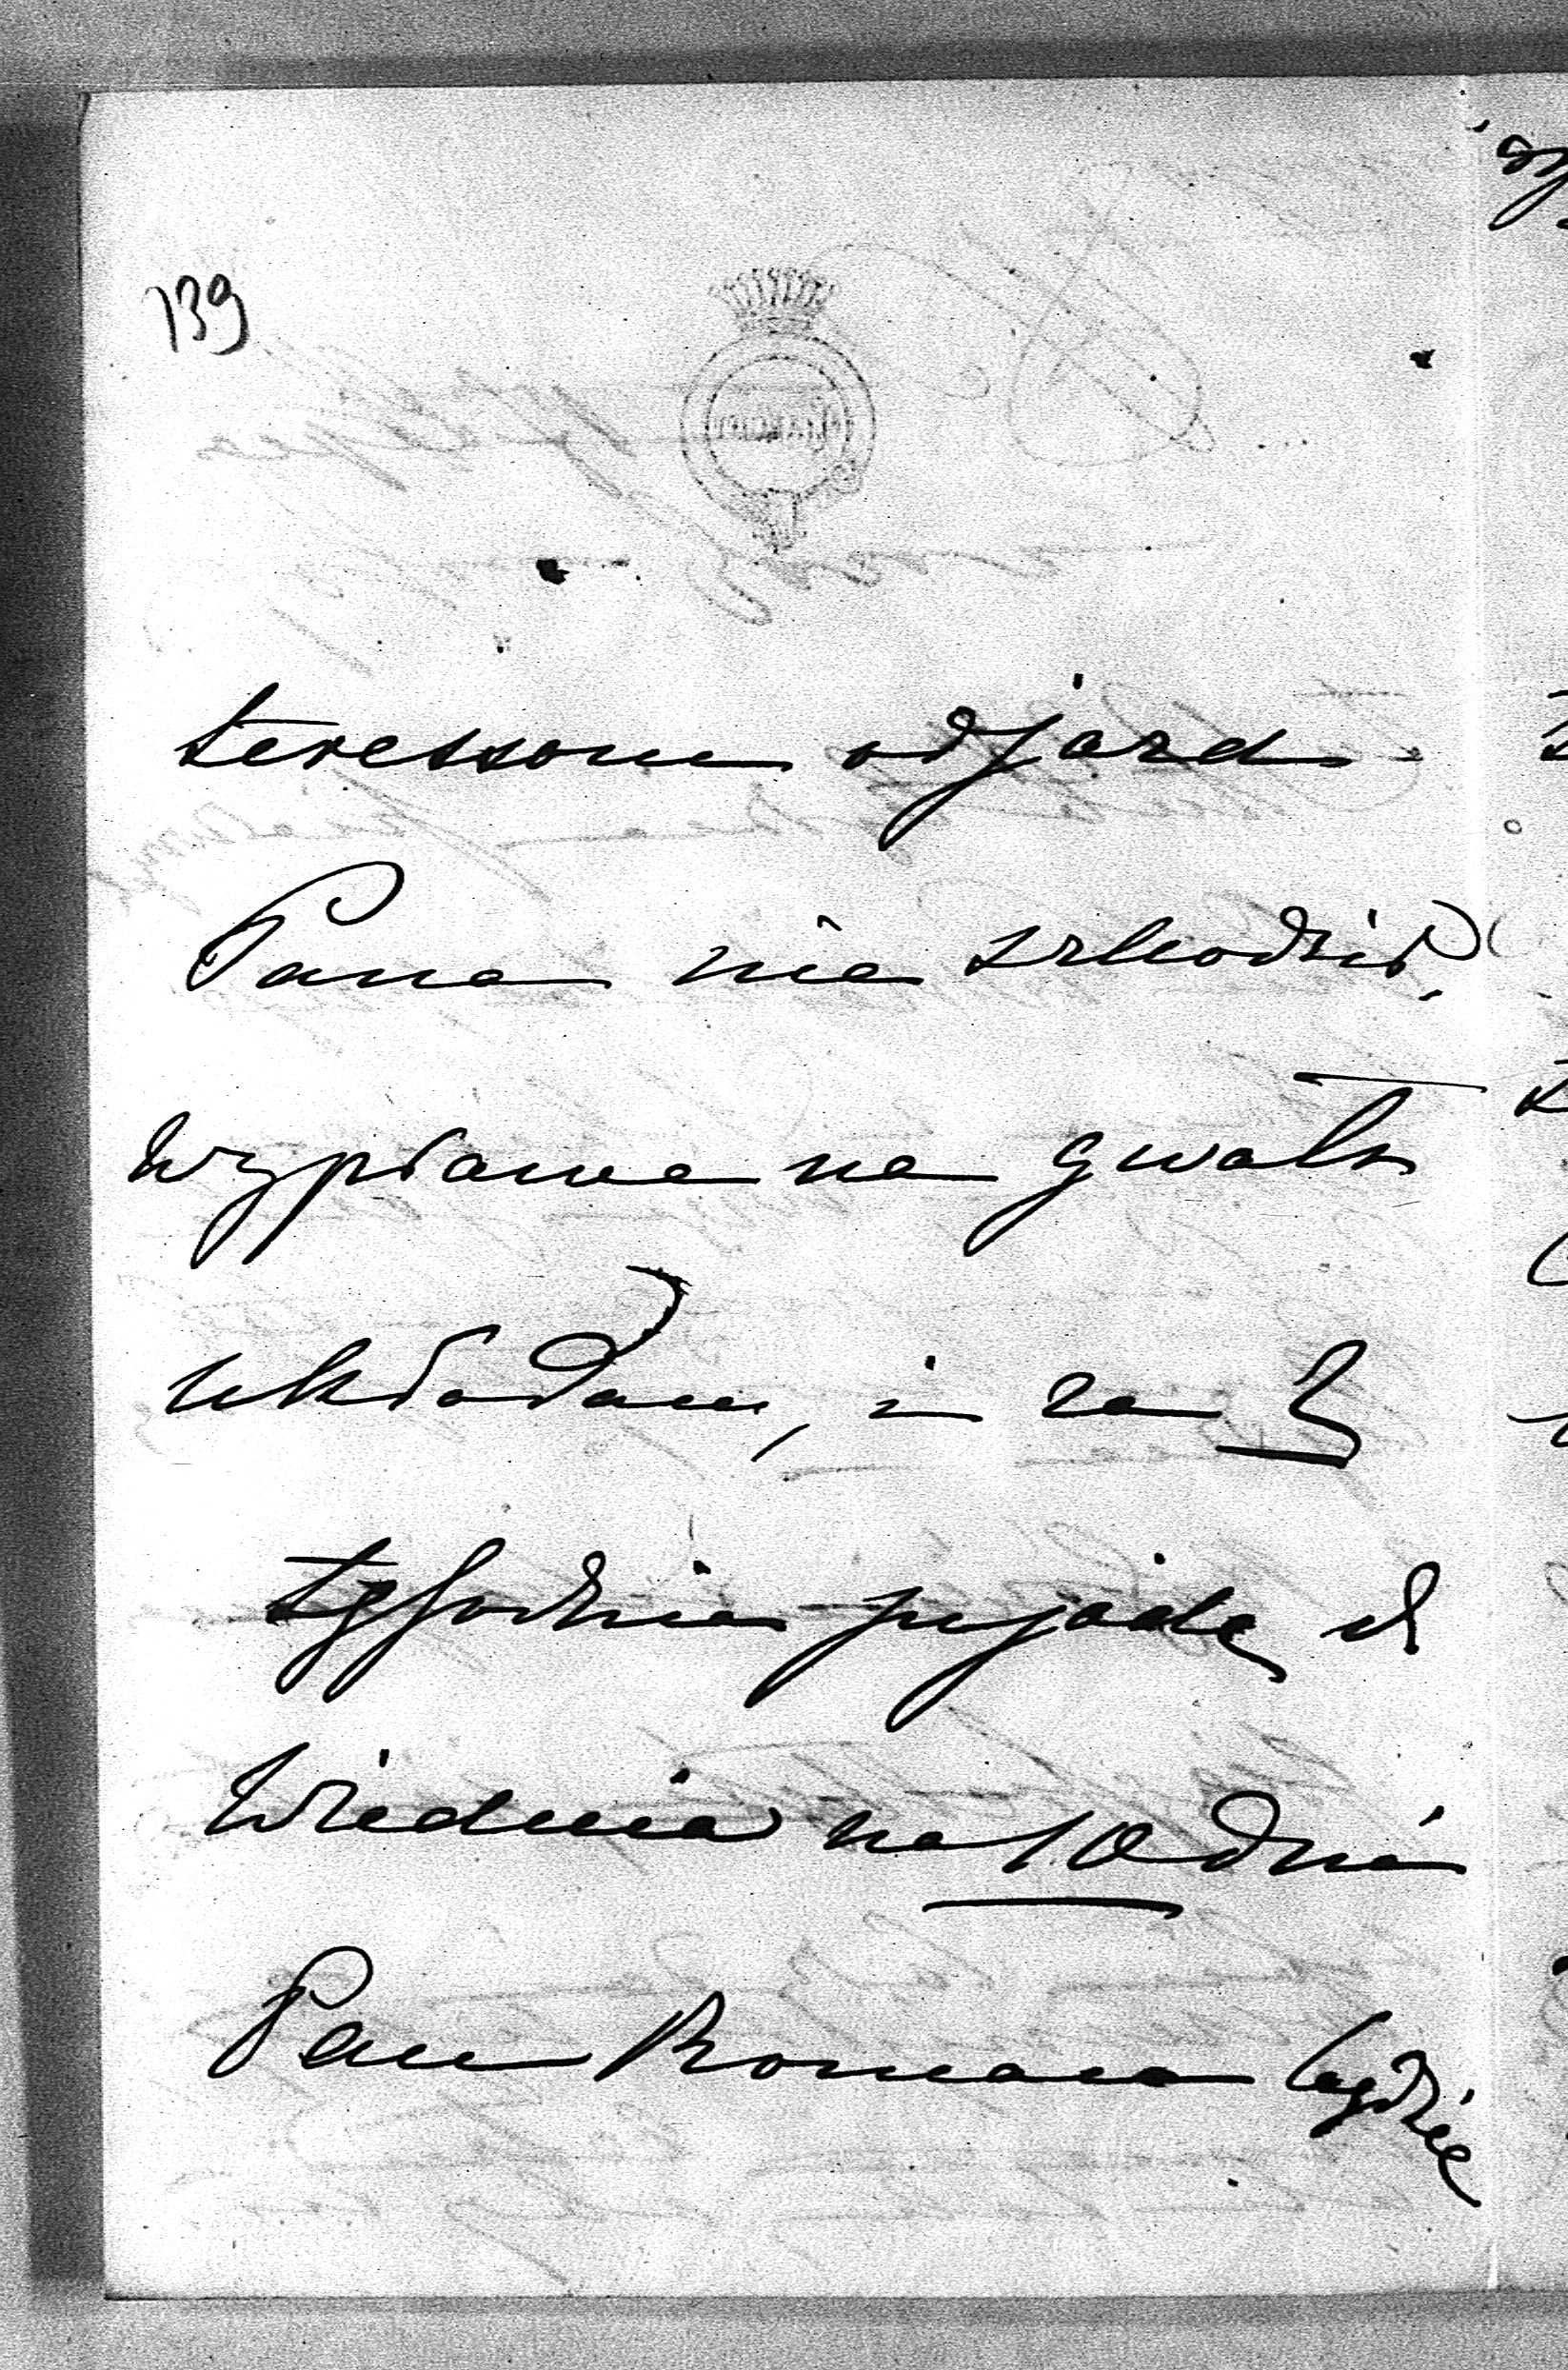 139
teressom odjazd
Pana nie szkodził.
Wyprawe na gwałt
układam, i za 3
tygodnie pojadę d
Wiednia na 10 dni
Pan Romana będzie